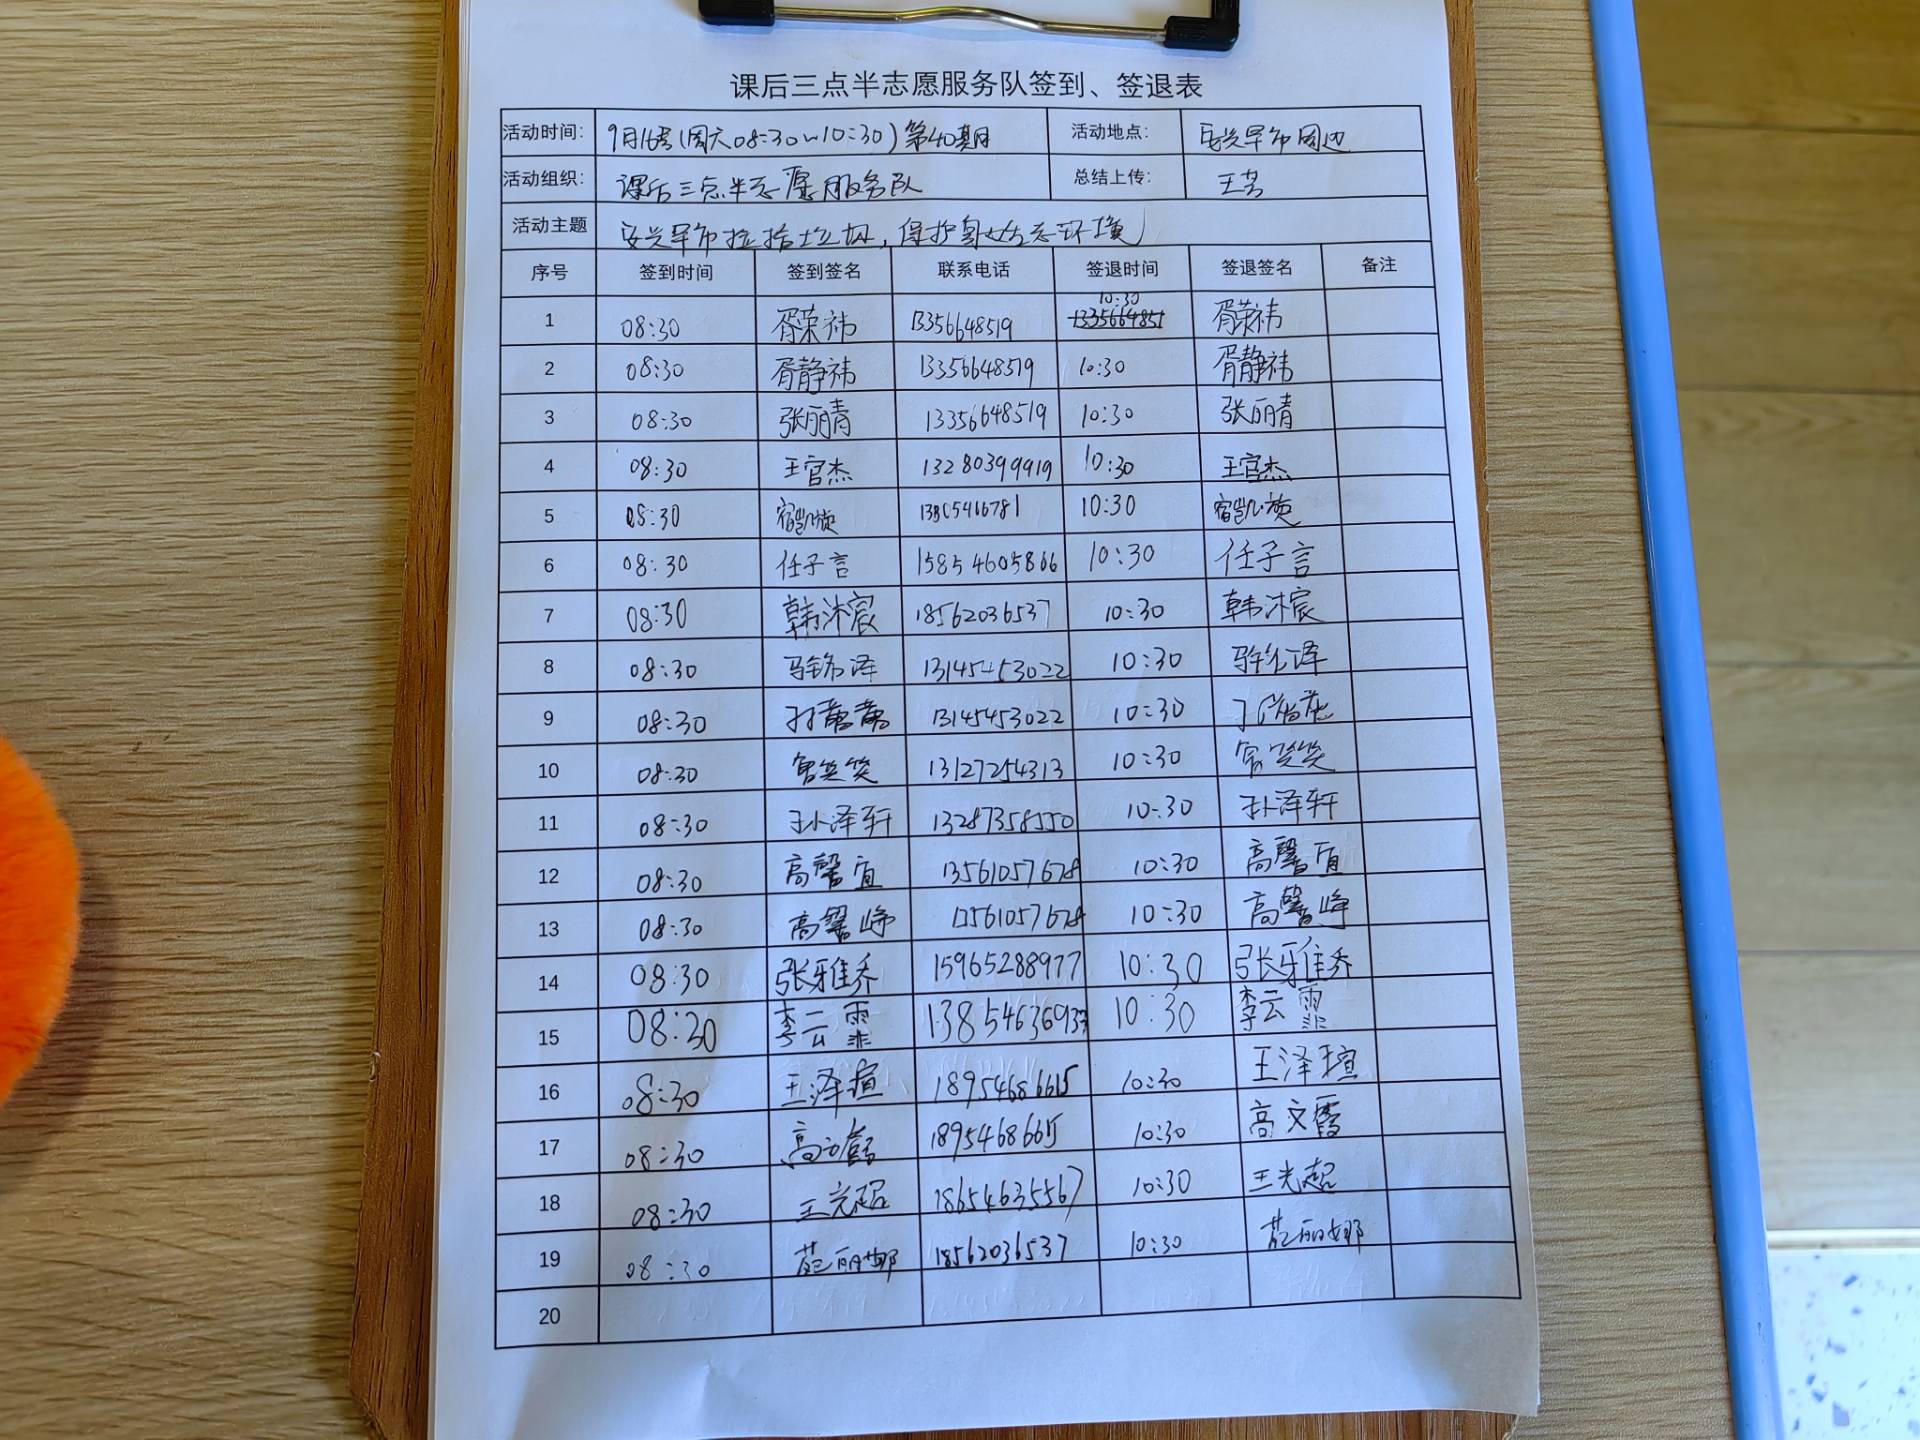 课后三点半志愿服务队签到、签退表
活动时间: 9月16号(周六08:30~10:30)第40期 活动地点: 安兴早市周边
活动组织: 课后三点半志愿服务队 总结上传: 王芳
活动主题 安兴早市捡拾垃圾,保护身边生态环境
序号 签到时间 签到签名 联系电话 签退时间 签退签名 备注
1 08:30 胥荣祎 13356648519 10:30 胥荣祎
2 08:30 胥静祎 13356648519 10:30 胥静祎
3 08:30 张丽青 13356648519 10:30 张丽青
4 08:30 王官杰 13280399919 10:30 王官杰
5 08:30 宿凯旋 10:30 宿凯旋
6 08:30 任子言 15854605866 10:30 任子言
7 08:30 韩沐宸 18562036537 10:30 韩沐宸
8 08:30 13145453022 10:30
9 08:30 13145453022 10:30
10 08:30 13127254313 10:30
11 08:30 孙泽轩 13287358550 10:30 孙泽轩
12 08:30 高馨宜 13561057678 10:30 高馨宜
13 08:30 高馨峥 13561057678 10:30 高馨峥
14 08:30 张雅乔 15965288977 10:30 张雅乔
15 08:30 李云霏 13854636937 10:30 李云霏
16 08:30 王泽瑄 18954686615 10:30 王泽瑄
17 08:30 高文霞 18954686615 10:30 高文霞
18 08:30 王光超 18654635567 10:30 王光超
19 08:30 范丽娜 18562036537 10:30 范丽娜
20